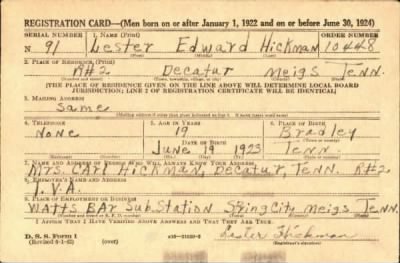 REGISTRATION CARD—(Men born on or after January 1, 1922 and on or before June 30, 1924)
SERIAL NUMBER 1. NAME (Print) ORDER NUMBER
N 91 Lester Edward Hickman 10448
2. PLACE OF RESIDENCE (Print)
R#2 Decatur Meigs Tenn.
(THE PLACE OF RESIDENCE GIVEN ON THE LINE ABOVE WILL DETERMINE LOCAL BOARD
JURISDICTION; LINE 2 OF REGISTRATION CERTIFICATE WILL BE IDENTICAL)
3. MAILING ADDRESS
Same
4. TELEPHONE 5. AGE IN YEARS 6. PLACE OF BIRTH
None 19 Bradley
DATE OF BIRTH
June 19 1923 Tenn.
7. NAME AND ADDRESS OF PERSON WHO WILL ALWAYS KNOW YOUR ADDRESS
Mrs. Carl Hickman, Decatur, Tenn. R#2
8. EMPLOYER'S NAME AND ADDRESS
T.V.A.
9. PLACE OF EMPLOYMENT OR BUSINESS
Watts Bar Sub. Station Spring City Meigs Tenn.
I AFFIRM THAT I HAVE VERIFIED ABOVE ANSWERS AND THAT THEY ARE TRUE.
Lester Hickman
D. S. S. Form 1
(Revised 6-1-42) (over) (Registrant's signature)